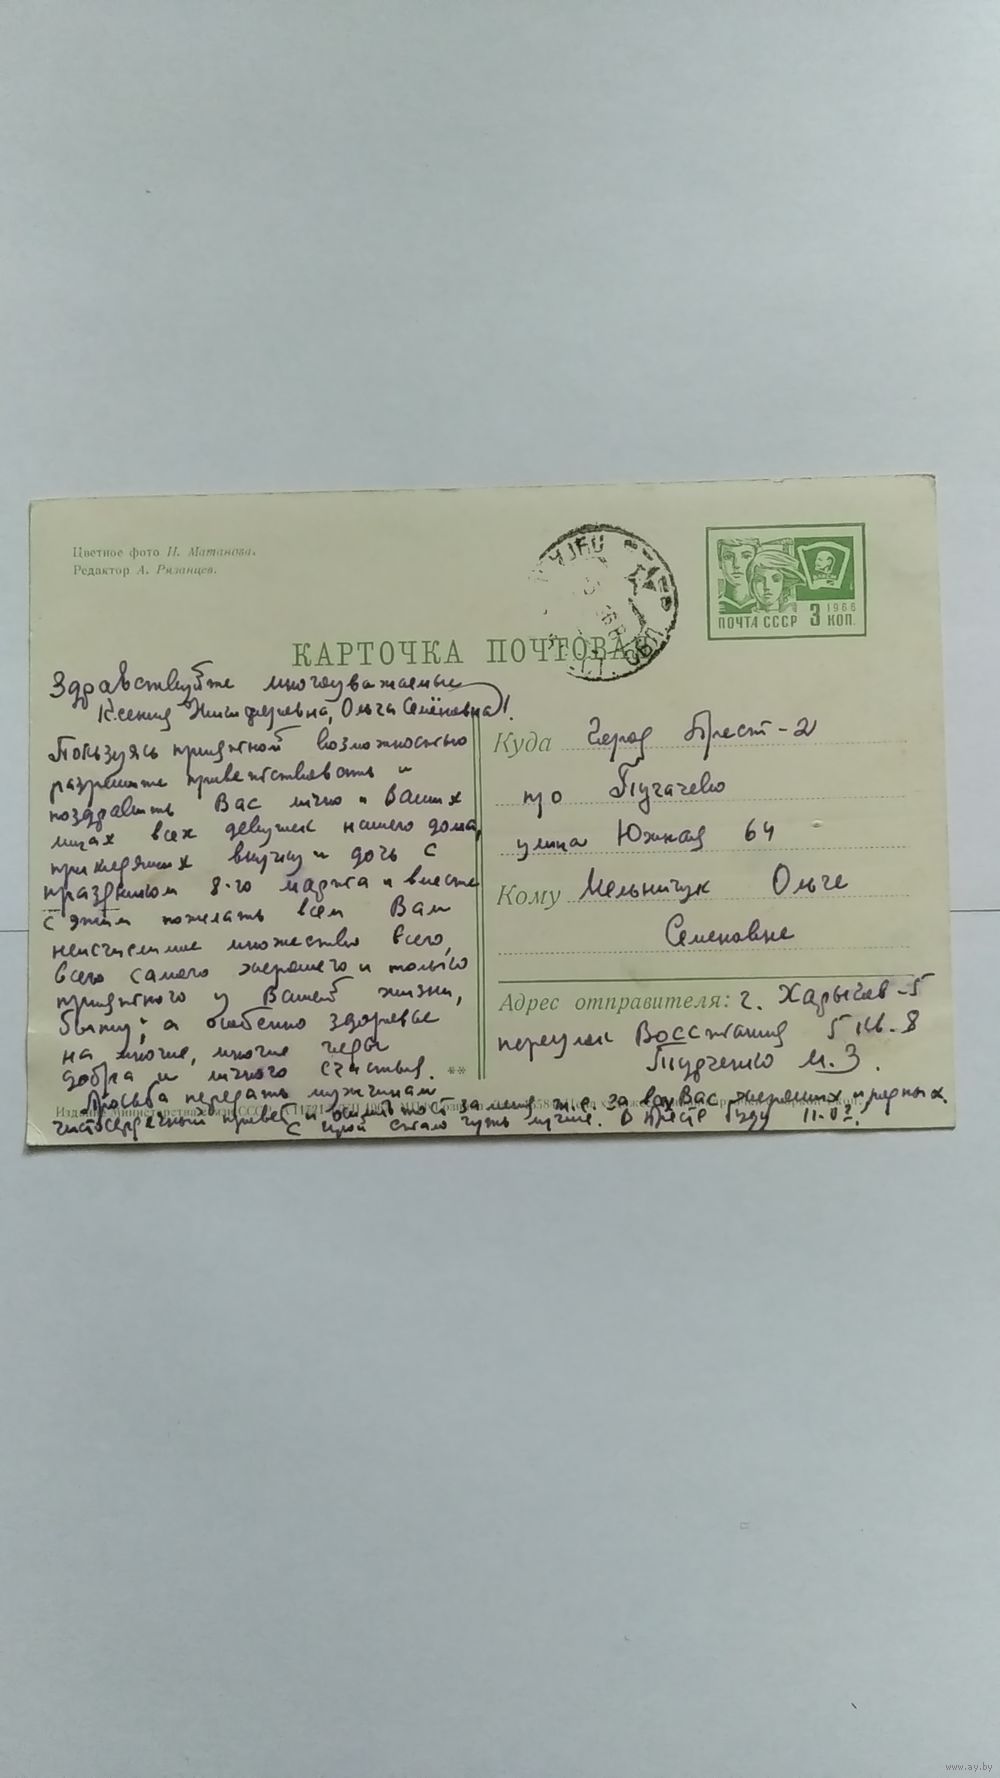 Цветное фото И. Матанова.
Редактор А. Рязанцев.
ПОЧТА СССР 3 КОП.
1966
КАРТОЧКА ПОЧТОВАЯ
Здравствуйте многоуважаемые
Ксения Никифоровна, Ольга Семёновна!
Пользуясь приятной возможностью
разрешите приветствовать и
поздравить Вас лично и Ваших
лицах всех девушек нашего дома,
внучку и дочь с
праздником 8-го марта и вместе
с этим пожелать всем Вам
неисчислимое множество всего,
всего самого хорошего и только
приятного у Вашей жизни,
быту; а особенно здоровье
на многие, многие годы
добра и личного счастья.
Просьба передать мужчинам
чистосердечный привет и тост за меня т.е. за Вас хороших и родных.
С стало чуть лучше. В Бресте буду 11-
Куда Город Брест-2
п/о Пугачево
улица Южная 64
Кому Мельничук Ольге
Семеновне
Адрес отправителя: г. Харычев-5
переулок Восстания 5 кв. 8
М. З.
**
Издание Министерства связи СССР
www.ay.by